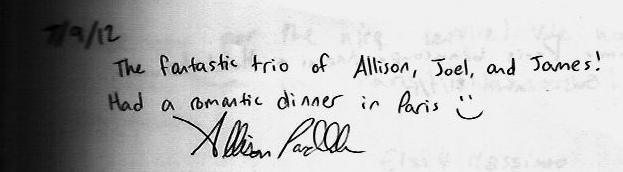 7/9/12
The fantastic trio of Allison, Joel, and James!
Had a romantic dinner in Paris :)
Allison